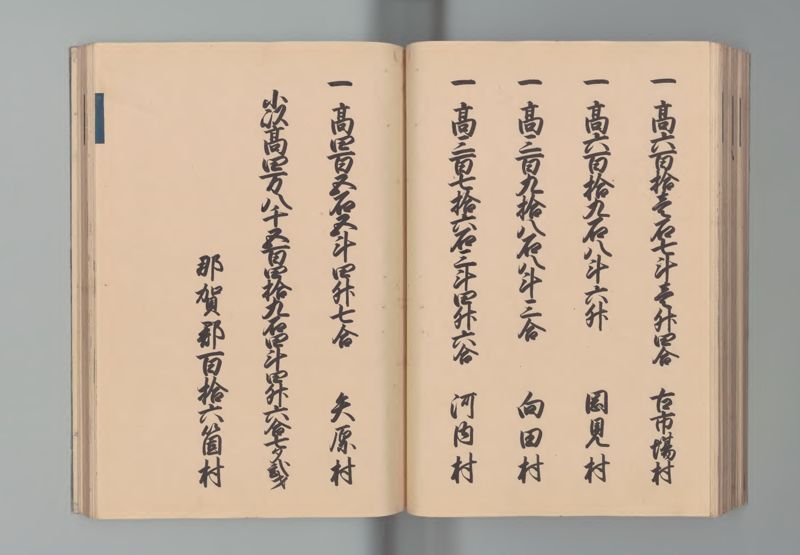 一高六百拾壱石七斗壱升四合 古市場村
一高六百拾九石八斗六升 岡見村
一高三百九拾八石八斗三合 向田村
一高三百七拾六石三斗四升六合 河内村
一高四百五石五斗四升七合 矢原村
高四万八千五百四拾九石四斗四升六合七夕弐才
那賀郡百拾六箇村